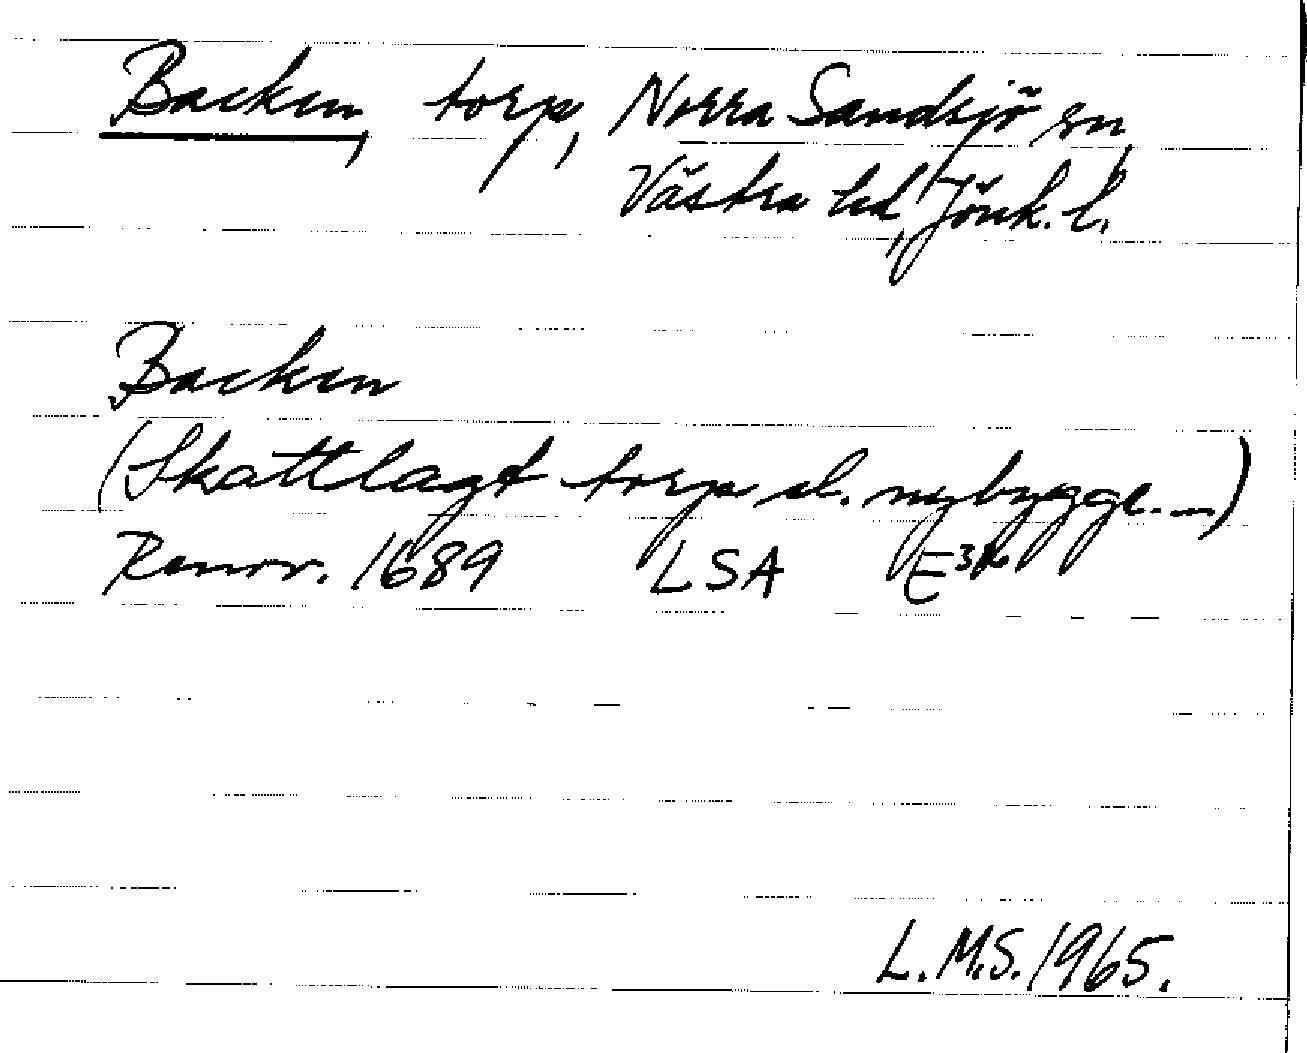 Backen, torp, Norra Sandsjö sn,
Västra hd, Jönk. l.
Backen
(Skattlagt torp el. nybygge. —)
Renov. 1689 LSA E³
L.M.S. 1965.